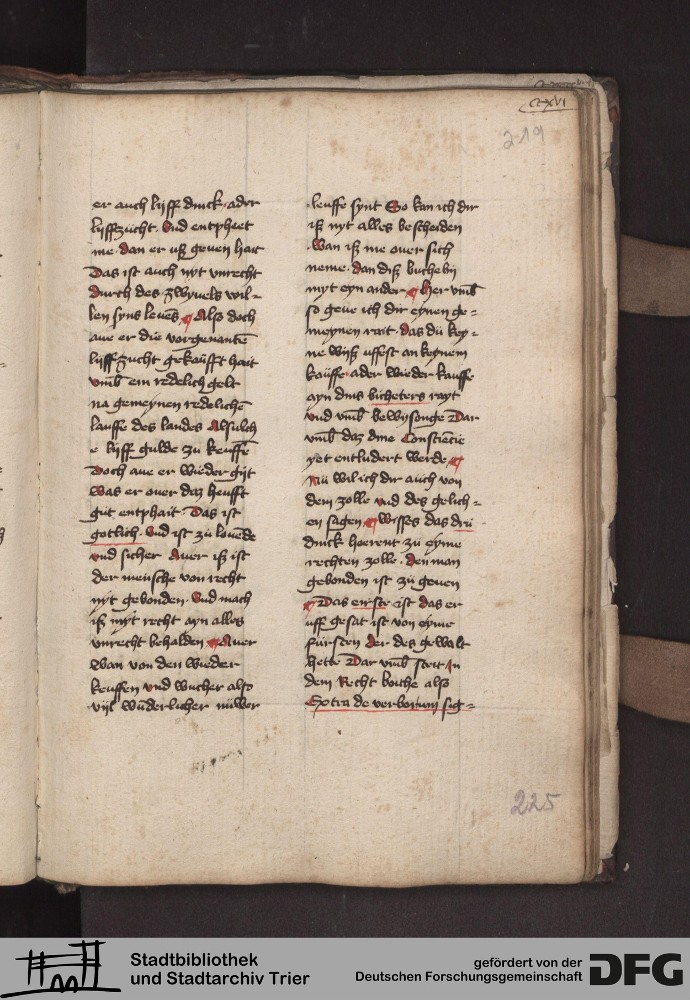 CCXVI
219
er auch lijff dinck · ader
lijffzucht · Und entpheet
me · dan er uß geuen hait
Das ist auch nyt unrecht
durch des zwyuels wil-
len syns leuens ¶ Alß doch
aue er die vorgenanten
lijffzucht gekaufft hait
umb ein redelich gelt
na gemeynen redelichē
lauffe des landes Alsulch
e lijff gulde zu keuffē
Doch aue er wieder gijt
was er ouer daz heufft
gut entphait · Das ist
gotlich · Und ist zu louēde
und sicher Auer iß ist
der mensche von recht
nyt gebonden · Und mach
iß myt recht ayn alles
unrecht behalden ¶ Auer
wan von den wieder
keuffen und wucher also
vijl wūderlicher nuwer
leuffe synt So kan ich dir
iß nyt alles bescheiden
Wan iß me ouer sich
neme · dan diß buchelin
myt eyn ander ¶ Her umb
so geue ich dir eynen ge-
meynen rait · das du key-
ne wijß uffest an keynem
kauffe · ader wieder kauffe
ayn dins bichters rayt
und umb bewijsonge Dar
umb daz dine Consciēcie
yet entludert werde ¶
Nu wil ich dir auch von
dem zolle und des gelich-
en sagen ¶ Wisses das dru
dinck hoerent zu eyme
rechten zolle · den man
gebonden ist zu geuen
¶ Das eirste ist das er
uff gesat ist von eyme
fursten der des gewalt
hette Dar umb steit In
dem Recht boiche alß
Extra de verborum sig-
225
Stadtbibliothek
und Stadtarchiv Trier
gefördert von der
Deutschen Forschungsgemeinschaft
DFG